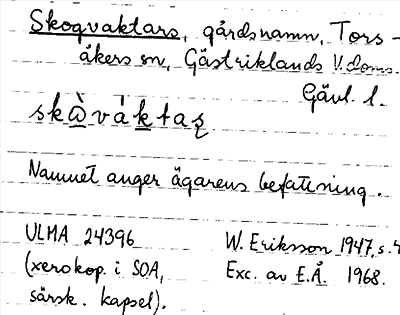 Skogvaktars, gårdsnamn, Tors-
åkers sn, Gästriklands V. doms.
Gävl. l.
Namnet anger ägarens befattning.
ULMA 24396
(xerokop. i SOA,
särsk. kapsel).
W. Eriksson 1947, s. 4
Exc. av E.Å. 1968.